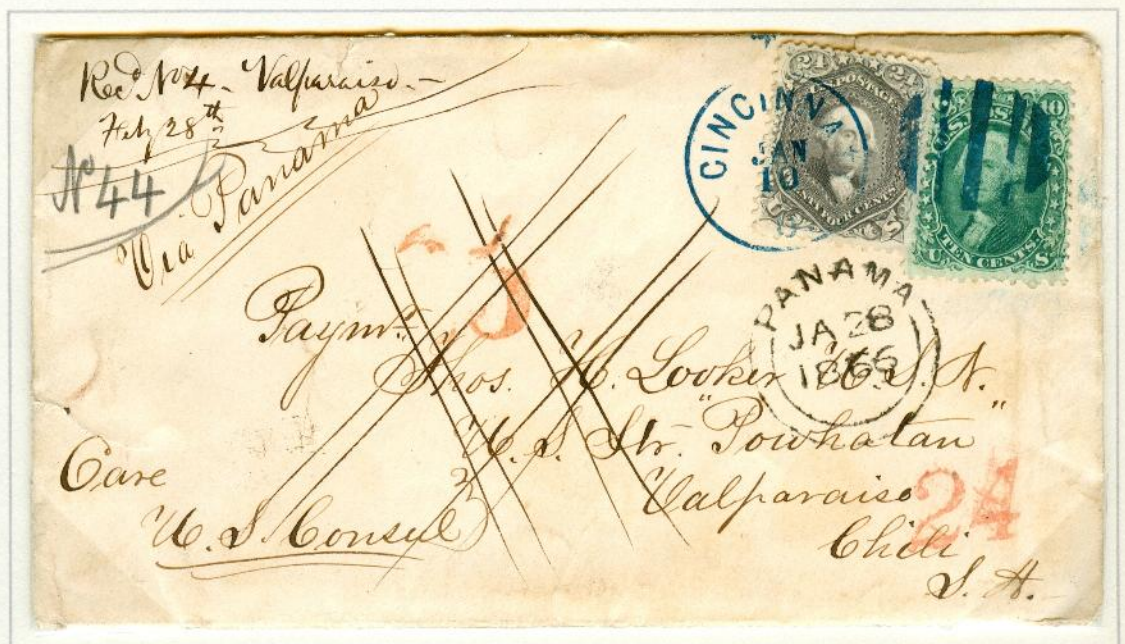 Recd No 4. Valparaiso -
Feby 28th
No 44
Via Panama
CINCINNA
JAN
10
24 24
U.S. POSTAGE
TWENTY FOUR CENTS
U S
10
U.S. POSTAGE
TEN CENTS
U S
PANAMA
JA 28
1866
Paymr
Thos. H. Looker U.S.N.
U.S. Str. "Powhatan"
Valparaiso
24
Chili
S. A.
Care
U.S. Consul